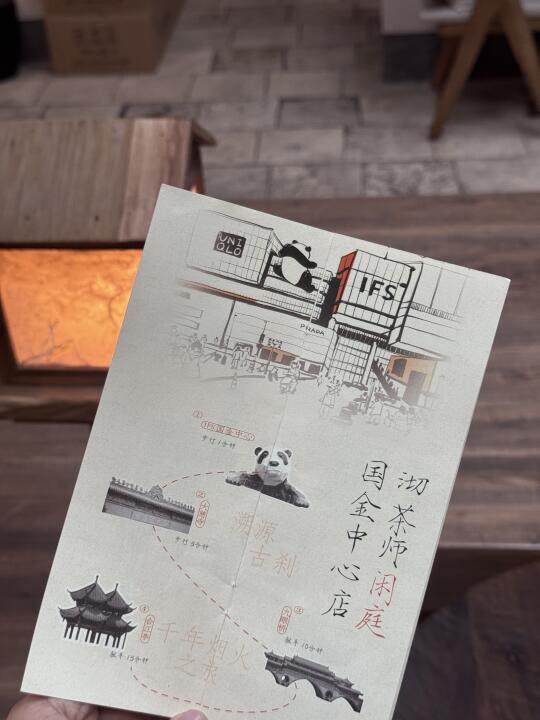 UNI
QLO
IFS
PRADA
①
IFS国金中心
步行1分钟
②
大慈寺
步行5分钟
溯源
古刹
沏茶师闲庭
国金中心店
③
九眼桥
驱车10分钟
④
合江亭
驱车15分钟
千年烟火
之景